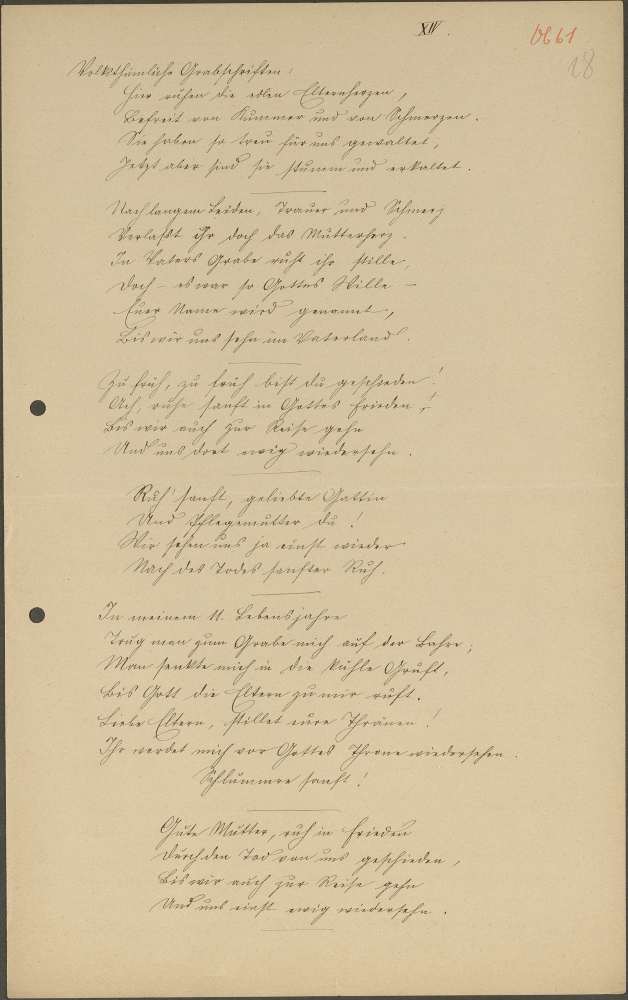 XIV.
Ob 61
28
Volksthümliche Grabschriften:
Hier ruhen die edlen Elternherzen,
Befreit von Kummer und von Schmerzen.
Sie haben so treu für uns gewaltet,
Jetzt aber sind sie stumm und erkaltet.
Nach langem Leiden, Trauer und Schmerz
Verlaßt ihr doch das Mutterherz.
In Vaters Grabe ruht ihr stille,
Doch – es war so Gottes Wille –
Euer Name wird genannt,
Bis wir uns sehn im Vaterland.
Zu früh, zu früh bist du geschieden!
Ach, ruhe sanft in Gottes Frieden!
Bis wir auch zur Reise gehn
Und uns dort ewig wiedersehn.
Ruh' sanft, geliebte Gattin
Und Pflegemutter du!
Wir sehen uns ja einst wieder
Nach des Todes sanfter Ruh.
In meinem 11. Lebensjahre
Trug man zum Grabe mich auf der Bahre;
Man senkte mich in die kühle Gruft,
Bis Gott die Eltern zu mir ruft.
Liebe Eltern, stillet eure Thränen!
Ihr werdet mich vor Gottes Throne wiedersehen.
Schlummre sanft!
Gute Mutter, ruh in Frieden
Durch den Tod von uns geschieden,
Bis wir auch zur Reise gehn
Und uns einst ewig wiedersehn.